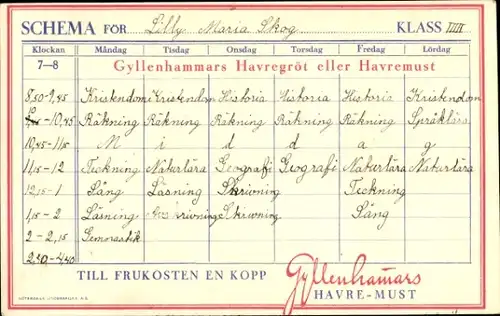 SCHEMA FÖR Lilly Maria Skog KLASS IIII
Klockan Måndag Tisdag Onsdag Torsdag Fredag Lördag
7—8 Gyllenhammars Havregröt eller Havremust
8,50-9,45 Kristendom Kristendom Historia Historia Historia Kristendom
10-10,45 Räkning Räkning Räkning Räkning Räkning Språklära
10,45-11,15 M i d d a g
11,15-12 Teckning Naturlära Geografi Geografi Naturlära Naturlära
12,15-1 Sång Läsning Skrivning Teckning
1,15-2 Läsning Skrivning Sång
2-2,15 Gemnastik
TILL FRUKOSTEN EN KOPP Gyllenhamars
HAVRE-MUST